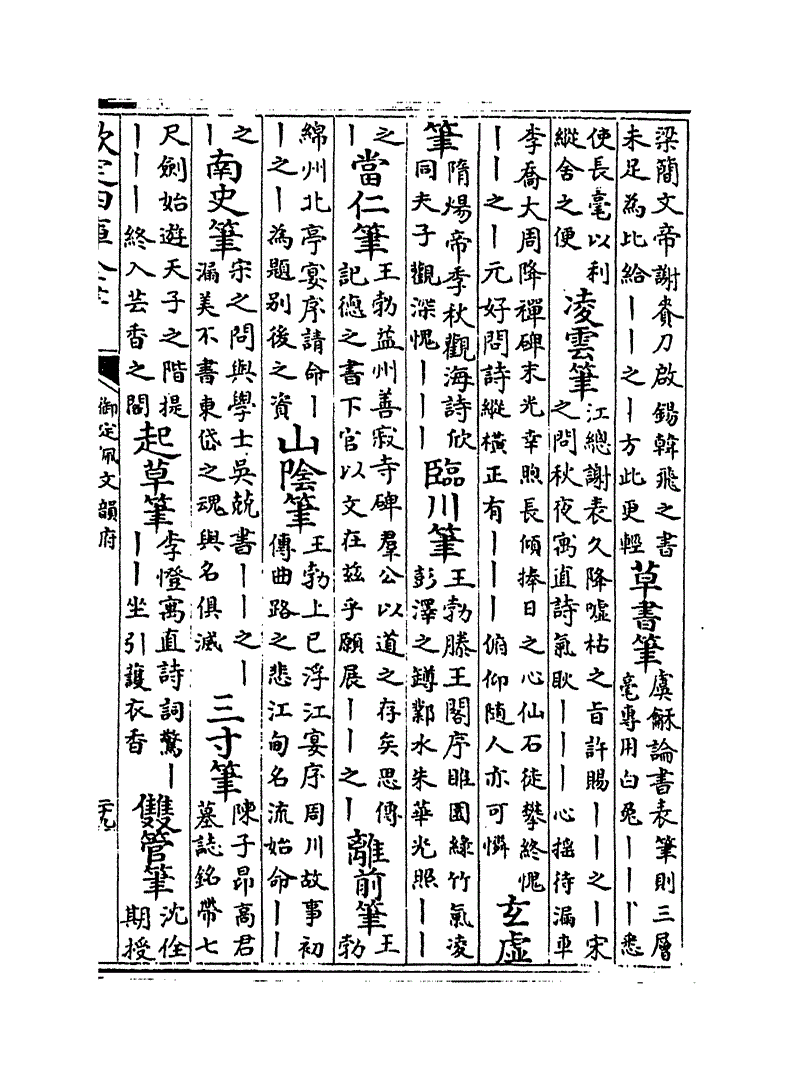 梁簡文帝謝賚刀啟錫韓飛之書
未足為比給丨丨之丨方此更輕
草書筆
虞龢論書表筆則三層
毫專用白兔丨丨丨悉
使長毫以利
縱舍之便
凌雲筆
江總謝表久降噓枯之旨許賜丨丨之丨宋
之問秋夜寓直詩氣耿丨丨丨心搖待漏車
李喬大周降禪碑末光幸煦長傾捧日之心仙石徒攀終愧
丨丨之丨元好問詩縱橫正有丨丨丨俯仰随人亦可憐
玄虛
筆
隋煬帝季秋觀海詩欣
同夫子觀深愧丨丨丨
臨川筆
王勃滕王閣序睢園緑竹氣凌
彭澤之罇鄴水朱華光照丨丨
之
丨
當仁筆
王勃益州善寂寺碑羣公以道之存矣思傳
記德之書下官以文在兹乎願展丨丨之丨
離前筆
王
勃
綿州北亭宴序請命丨
丨之丨為題别後之資
山隂筆
王勃上巳浮江宴序周川故事初
傳曲路之悲江甸名流始命丨丨
之
丨
南史筆
宋之問與學士吳兢書丨丨之丨
漏美不書東岱之魂與名俱滅
三寸筆
陳子昂高君
墓誌銘帶七
尺劍始遊天子之階提
丨丨丨終入芸香之閣
起草筆
李憕寓直詩詞驚丨
丨丨坐引護衣香
雙管筆
沈佺
期授
欽定四庫全書
御定佩文韻府
二十九